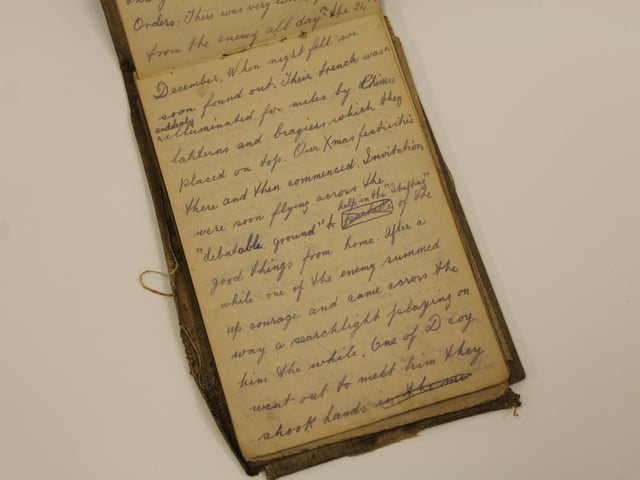 Orders; There was very
from the enemy all day? the 24
December, When night fell we
soon found out. Their trench was
suddenly
illuminated for miles by Chinese
lanterns and braziers which they
placed on top. Our Xmas festivities
there and then commenced. Invitations
were soon flying across the
help in the "Shifting"
"debatable ground" to of the
good things from home. After a
while one of the enemy summed
up courage and came across the
way a searchlight playing on
him the while. One of D coy
went out to meet him they
shook hands in the mi